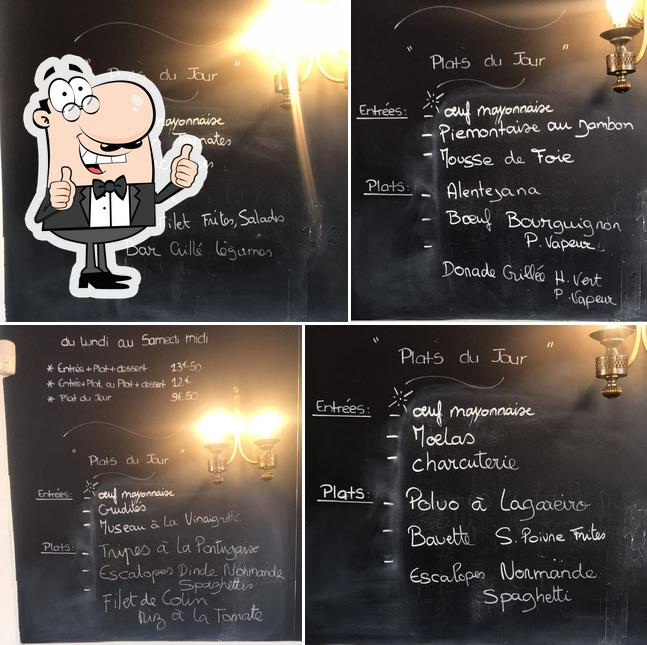 du Jour
mayonnaise
Tomates
Filet Frites, Salades
Bar Grillé légumes
" Plats du Jour "
Entrées: - œuf mayonnaise
- Piemontaise au Jambon
- Mousse de Foie
Plats: - Alentejana
- Bœuf Bourguignon
P. Vapeur
- Dorade Grillée H. Vert
P. Vapeur
du Lundi au Samedi midi
* Entrée + Plat + dessert 13€50
* Entrée + Plat ou Plat + dessert 12€
* Plat du Jour 9€50
" Plats du Jour "
Entrées: - œuf mayonnaise
- Crudités
- Museau à la Vinaigrette
Plats: - Tripes à la Portugaise
- Escalopes Dinde Normande
Spaghettis
- Filet de Colin
Riz à la Tomate
" Plats du Jour "
Entrées: - œuf mayonnaise
- Moelas
- charcuterie
Plats: - Polvo à Lagareiro
- Bavette S. Poivre Frites
- Escalopes Normande
Spaghetti